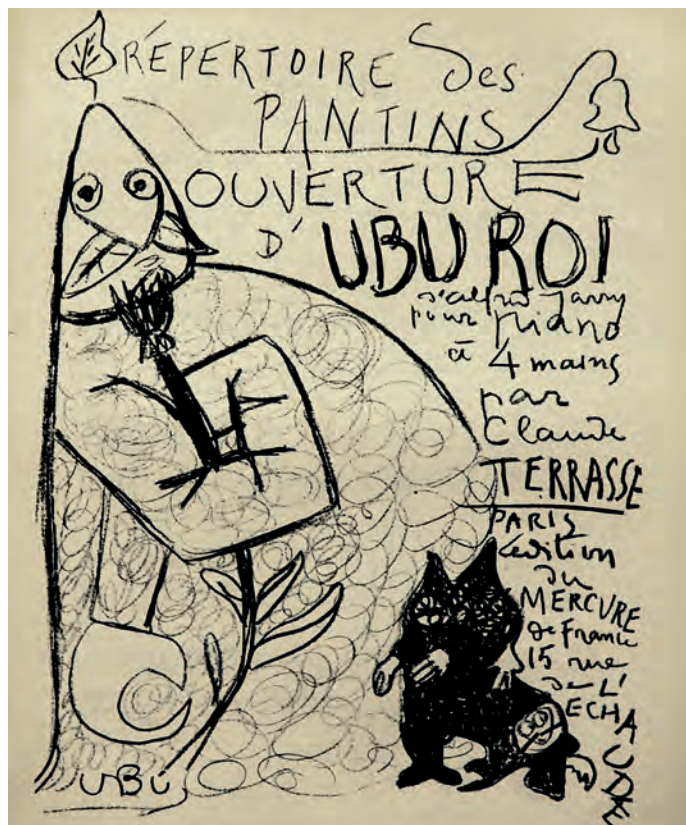 RÉPERTOIRE des
PANTINS
OUVERTURE
D'UBU ROI
d'alfred Jarry
pour piano
à 4 mains
par
Claude
TERRASSE
PARIS
édition
du
MERCURE
de France
15 rue
de L'
ECHAUDE
UBU